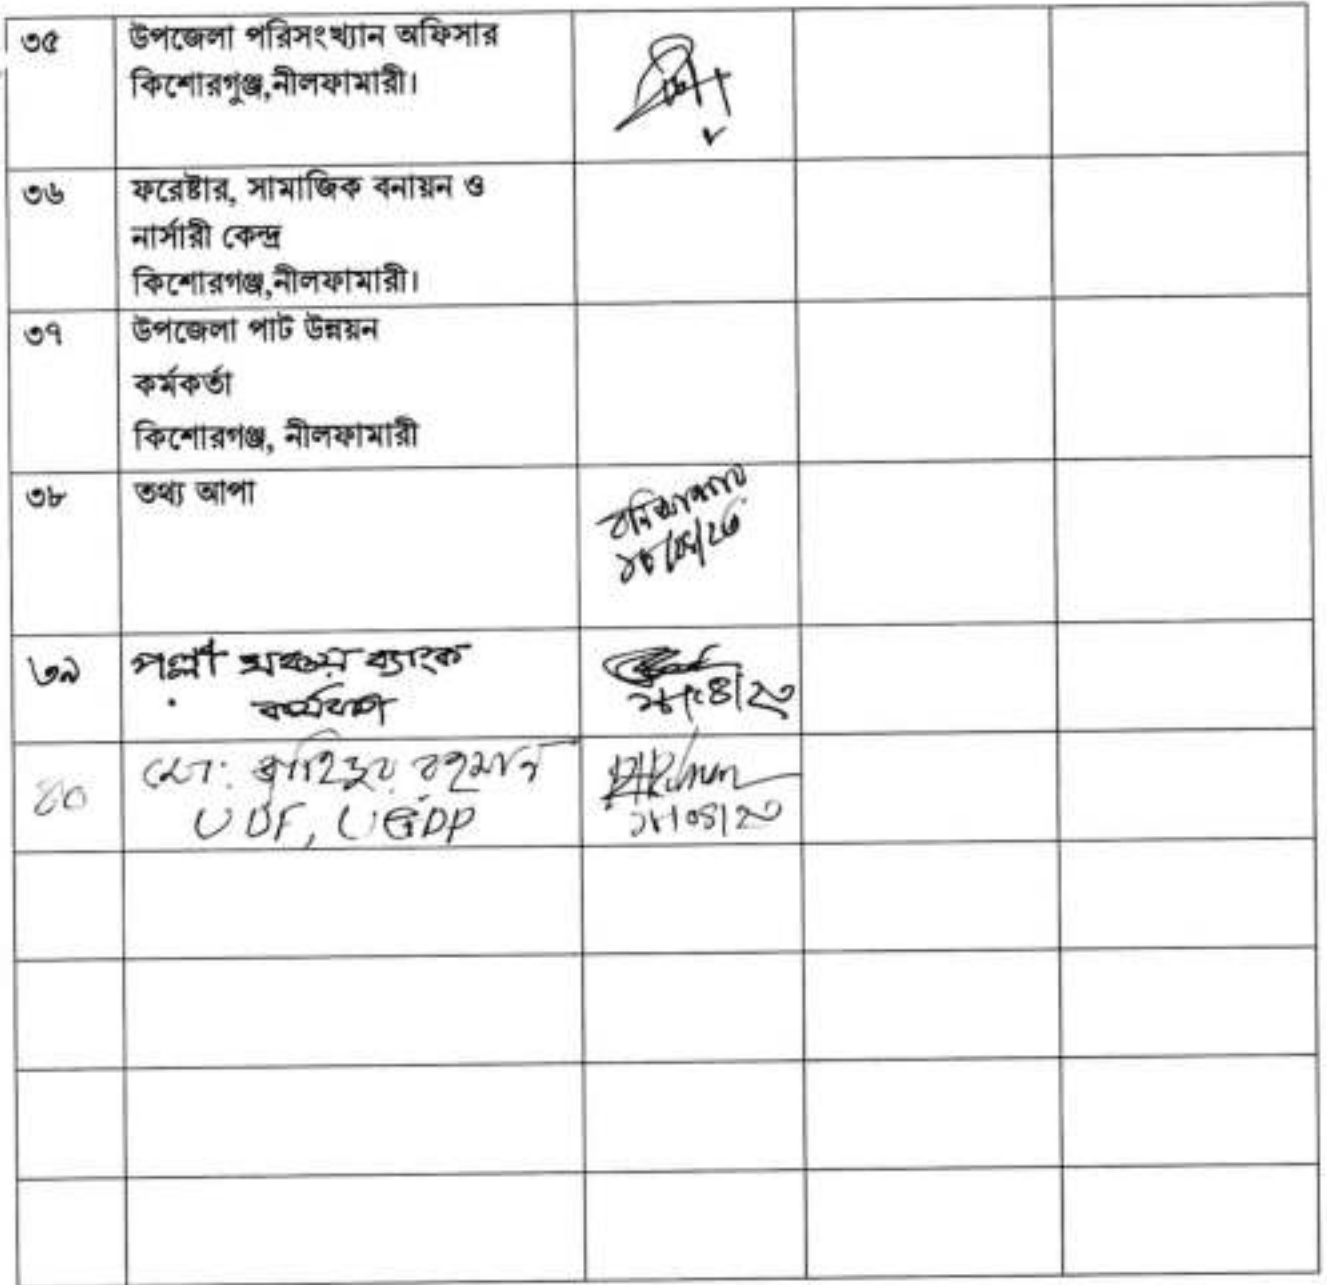 ৩৫ উপজেলা পরিসংখ্যান অফিসার
কিশোরগুঞ্জ,নীলফামারী।
৩৬ ফরেষ্টার, সামাজিক বনায়ন ও
নার্সারী কেন্দ্র
কিশোরগঞ্জ,নীলফামারী।
৩৭ উপজেলা পাট উন্নয়ন
কর্মকর্তা
কিশোরগঞ্জ, নীলফামারী
৩৮ তথ্য আপা
৩৯ পল্লী সঞ্চয় ব্যাংক
৪০ মো: রহমান
UDF, UGDP